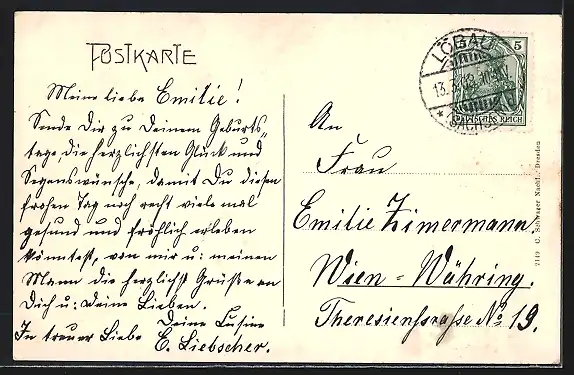 POSTKARTE
Meine liebe Emilie!
Sende Dir zu Deinem Geburts„
tage, die herzlichsten Glück und
Segenswünsche, damit Du diesen
frohen Tag noch recht viele mal
gesund und fröhlich erleben
könntest, von mir u: meinen
Mann die herzlichst Grüße an
Dich u: Deine Lieben.
Deine Cusine
In treuer Liebe E. Liebscher.
LÖBAU
13.3.
* (SACHSEN)
5
DEUTSCHES REICH
An
Frau
Emilie Zimermann.
Wien = Währing.
Theresienstraße No 19.
Nachf., Dresden